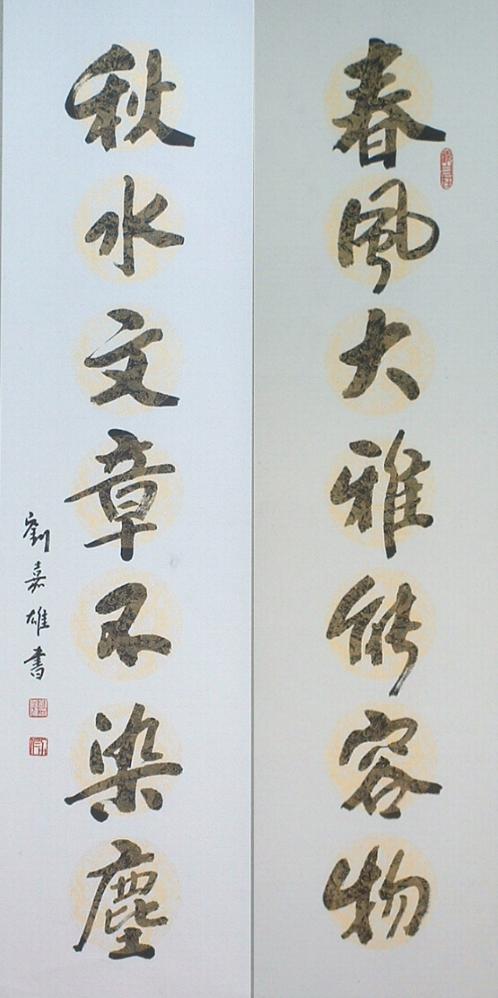 春風大雅能容物
秋水文章不染塵
劉嘉雄書